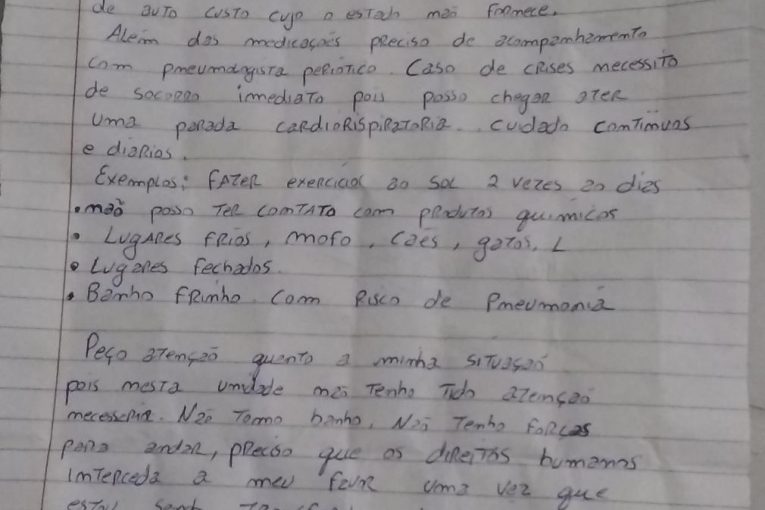 de auto custo cujo o estado não fornece.
Além das medicações preciso de acompanhamento
com pneumologista periótico. Caso de crises necessito
de socorro imediato pois posso chegar ater
uma parada cardiorispiratoria.. cudado continuos
e diarios.
Exemplos: FAZER exercicios ao sol 2 vezes ao dias
• não posso Ter contato com produtos quimicos
• Lugares frios, mofo, cães, gatos,
• Lugares fechados.
• Banho frinho com Risco de Pneumonia
Peço atenção quanto a minha situação
pois nesta unidade não Tenho Tido atenção
necesseria. Não Tomo banho, Não Tenho forças
para andar, preciso que os direitos humanos
interceda a meu favr uma vez que
estou